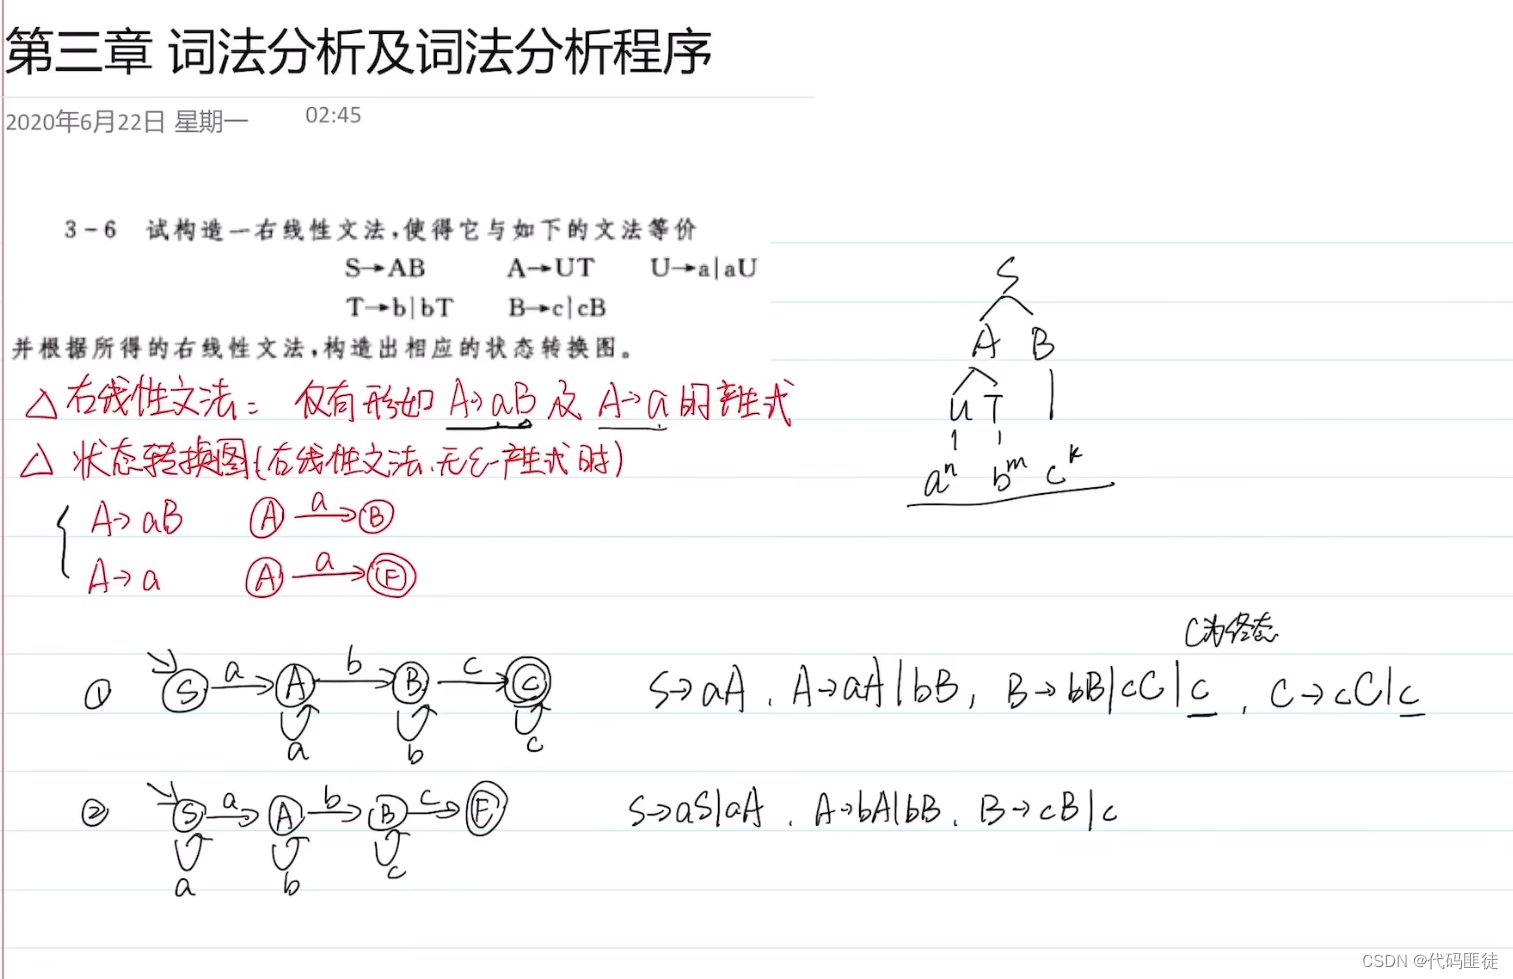 第三章 词法分析及词法分析程序
2020年6月22日 星期一 02:45
3-6 试构造一右线性文法,使得它与如下的文法等价
S→AB A→UT U→a|aU
T→b|bT B→c|cB
并根据所得的右线性文法,构造出相应的状态转换图。
△ 右线性文法: 仅有形如 A→aB 及 A→a 的产生式
△ 状态转换图(右线性文法、无ε-产生式时)
A→aB A a B
A→a A a F
S
A B
U T
aⁿ bᵐ cᵏ
C为终态
① S a A b B c C S→aA , A→aA|bB, B→bB|cC|c , C→cC|c
a b c
② S a A b B c F S→aS|aA , A→bA|bB , B→cB|c
a b c
CSDN @代码匪徒